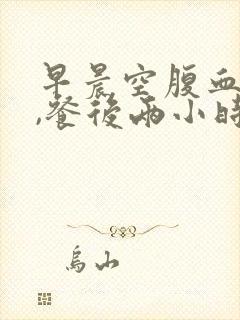 早晨空腹血
,餐後兩小時
烏山